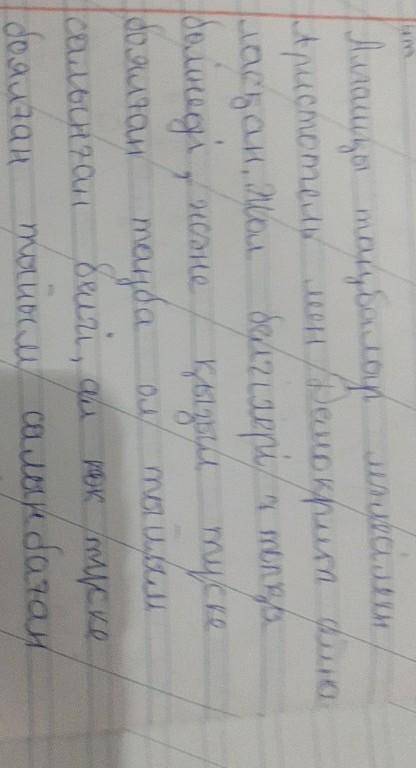 Алғашқы таңбалар мәселесін
Аристотель мен Демокрит айна
ласқан. Жол белгілері 4 топқа
бөлінеді, және қызыл түске
боялған таңба ол тыйым
салынған белгі, ал көк түске
боялған тыйым салынбаған